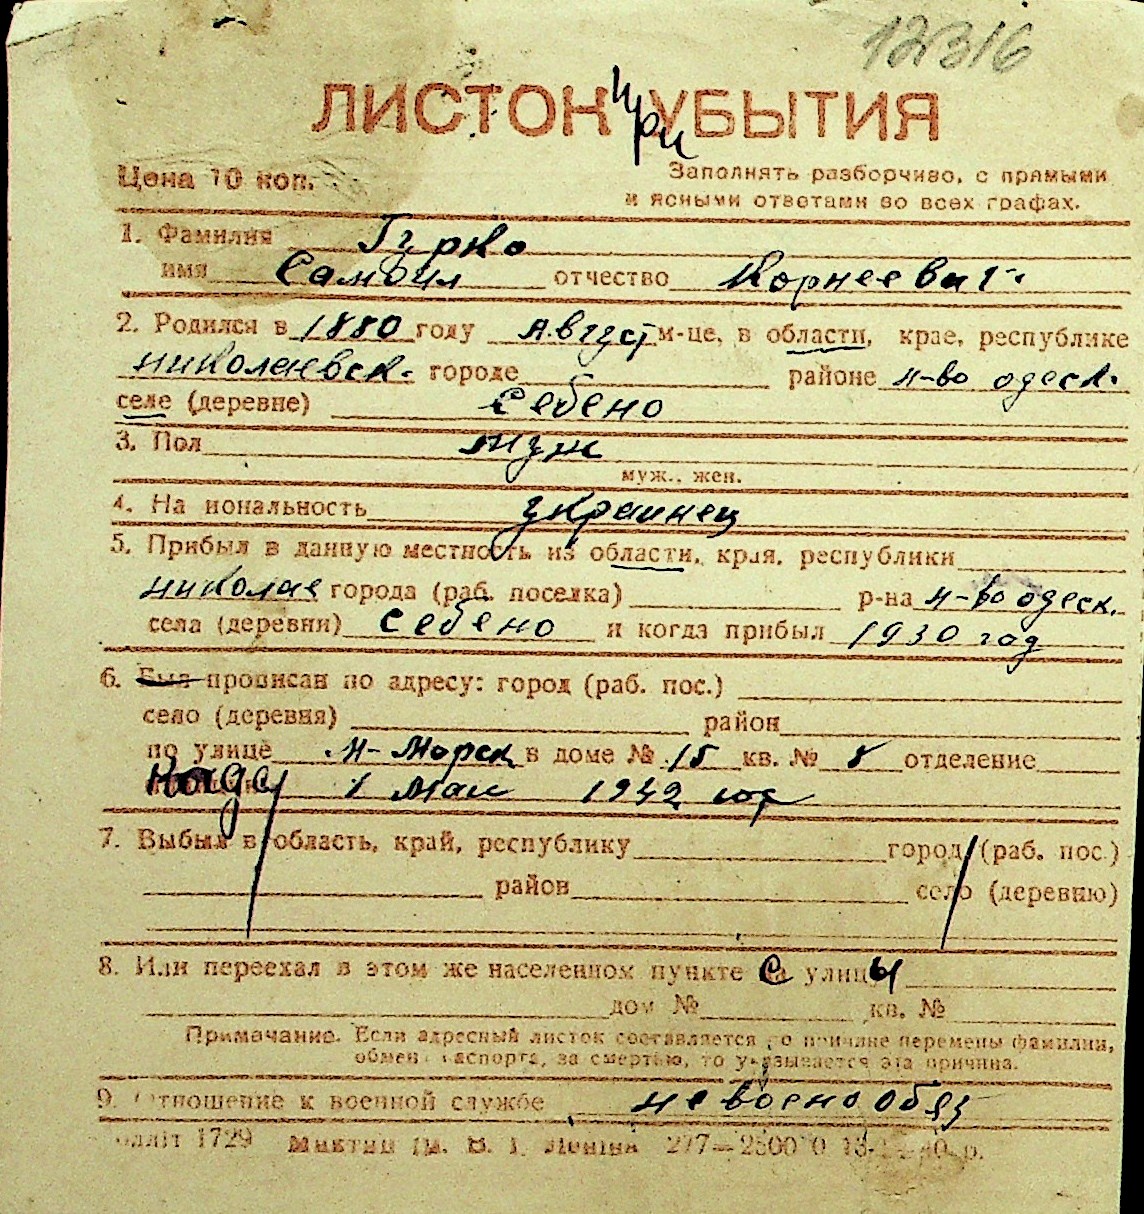 12316
ЛИСТОК при УБЫТИЯ
Цена 10 коп.
Заполнять разборчиво, с прямыми
и ясными ответами во всех графах.
1. Фамилия Гурко
имя Самоил отчество Корнеевич
2. Родился в 1880 году Август м-це, в области, крае, республике
николаевск. городе районе н-во одеск.
селе (деревне) Себено
3. Пол муж
муж., жен.
4. На иональность украинец
5. Прибыл в данную местность из области, края, республики
николае города (раб. поселка) р-на н-во одеск.
села (деревни) Себено и когда прибыл 1930 год
6. Был прописан по адресу: город (раб. пос.)
село (деревня) район
по улице М-Морск в доме № 15 кв. № 8 отделение
когда 1 Мая 1942 год
7. Выбыл в область, край, республику город (раб. пос.)
район село (деревню)
8. Или переехал в этом же населенном пункте С улицы
дом № кв. №
Примечание. Если адресный листок составляется по причине перемены фамилии,
обмен паспорта, за смертью, то указывается эта причина.
9. Отношение к военной службе не военообяз
1729 Ленина 277—